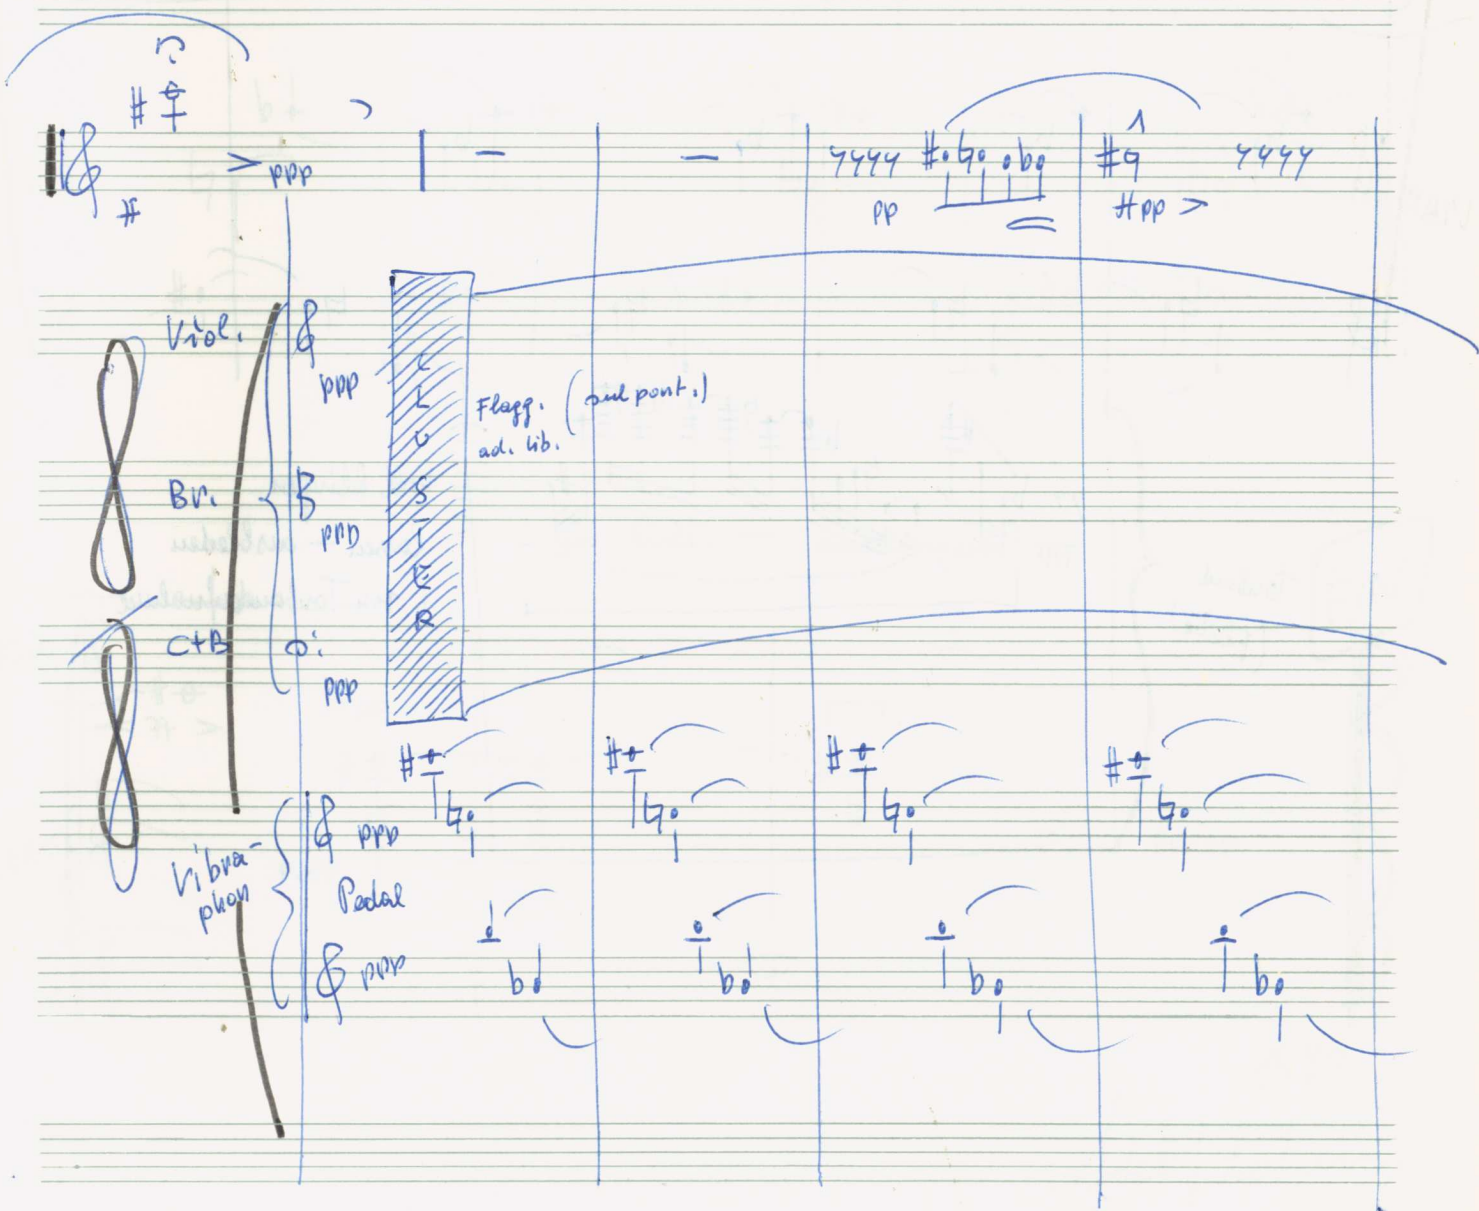 ppp
pp
pp
Viol.
ppp
CLUSTER
Flagg. (sul pont.)
ad. lib.
Br.
B
ppp
C+B
ppp
Vibra-
phon
ppp
Pedal
ppp